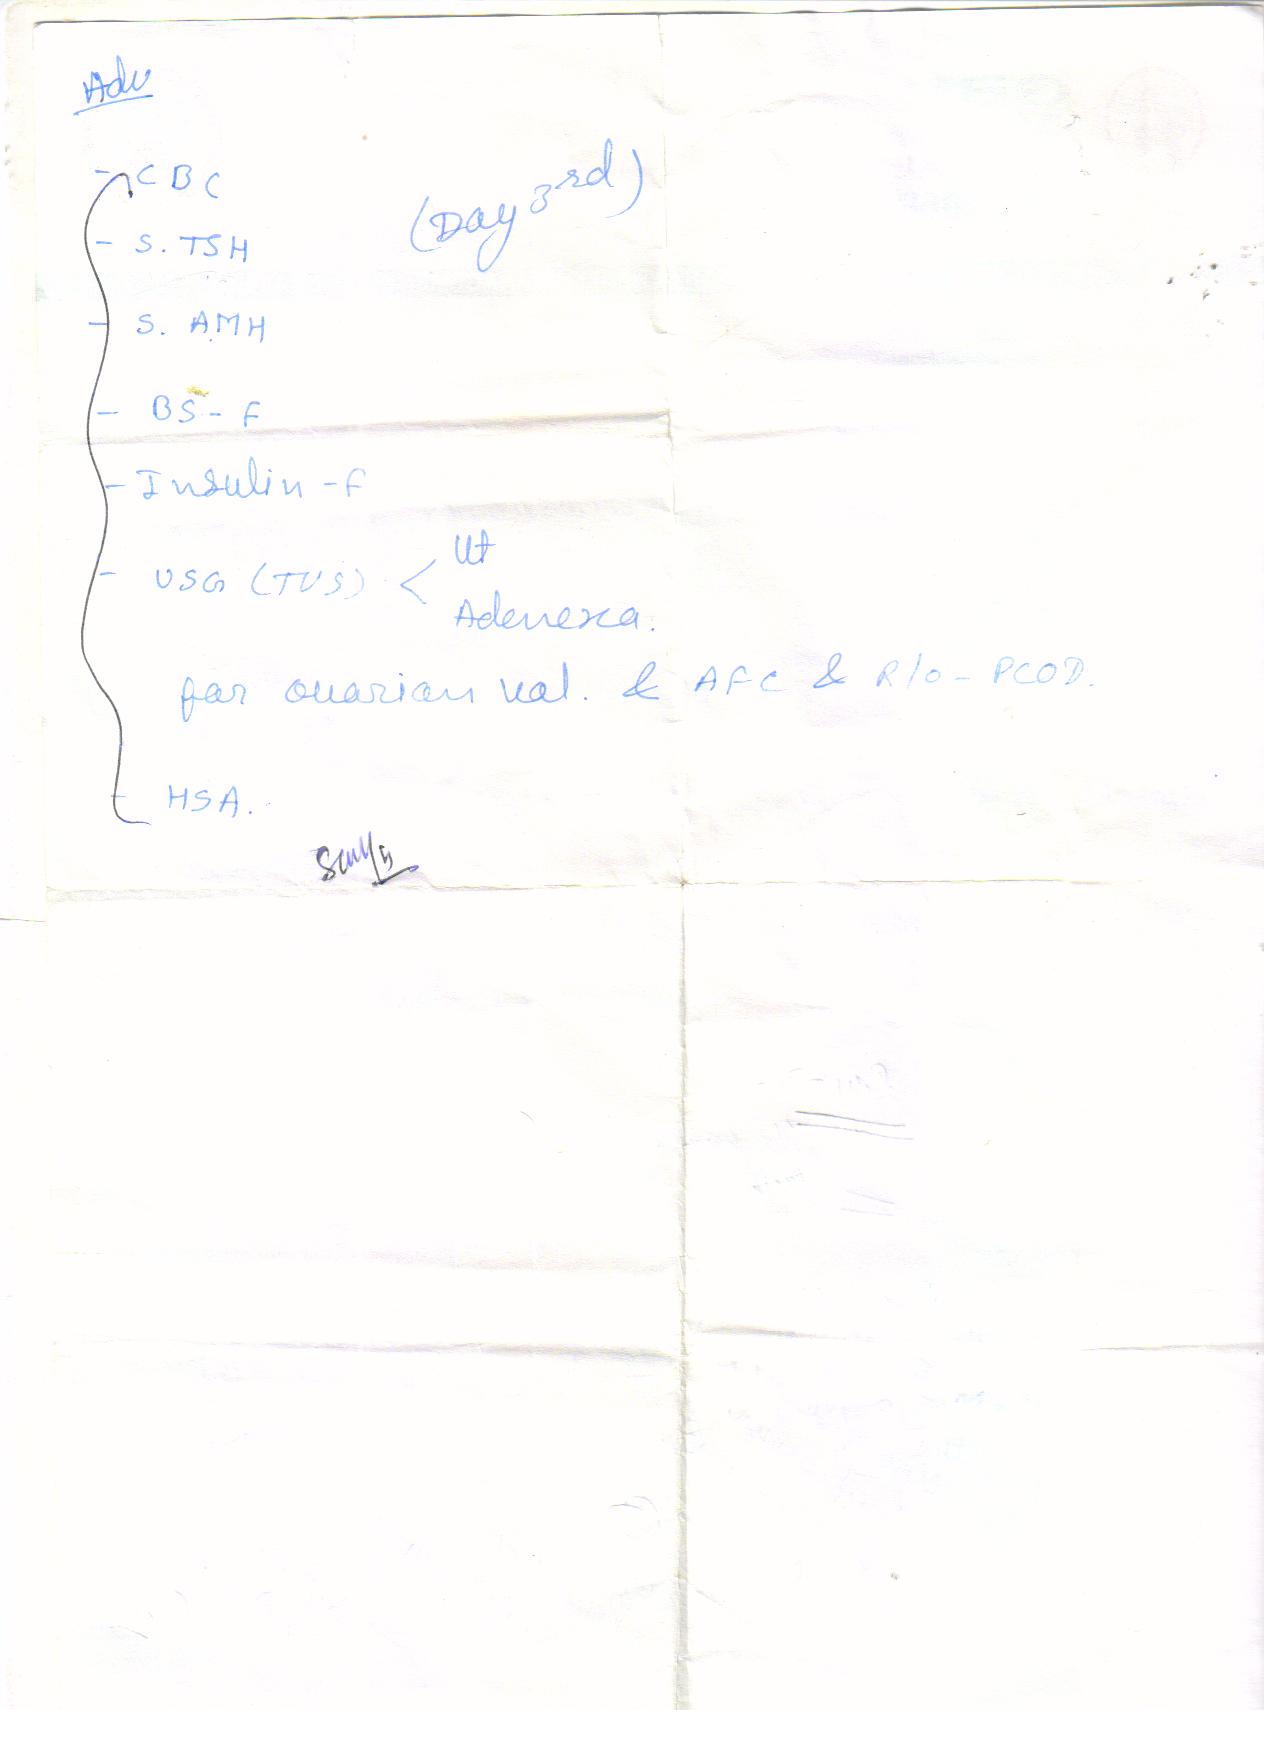 Adv
- CBC
(Day 3rd)
- S. TSH
- S. AMH
- BS - F
- Insulin - F
- USG (TVS) < Ut
Adenexa.
for ovarian vol. & AFC & R/o - PCOD.
- HSA.